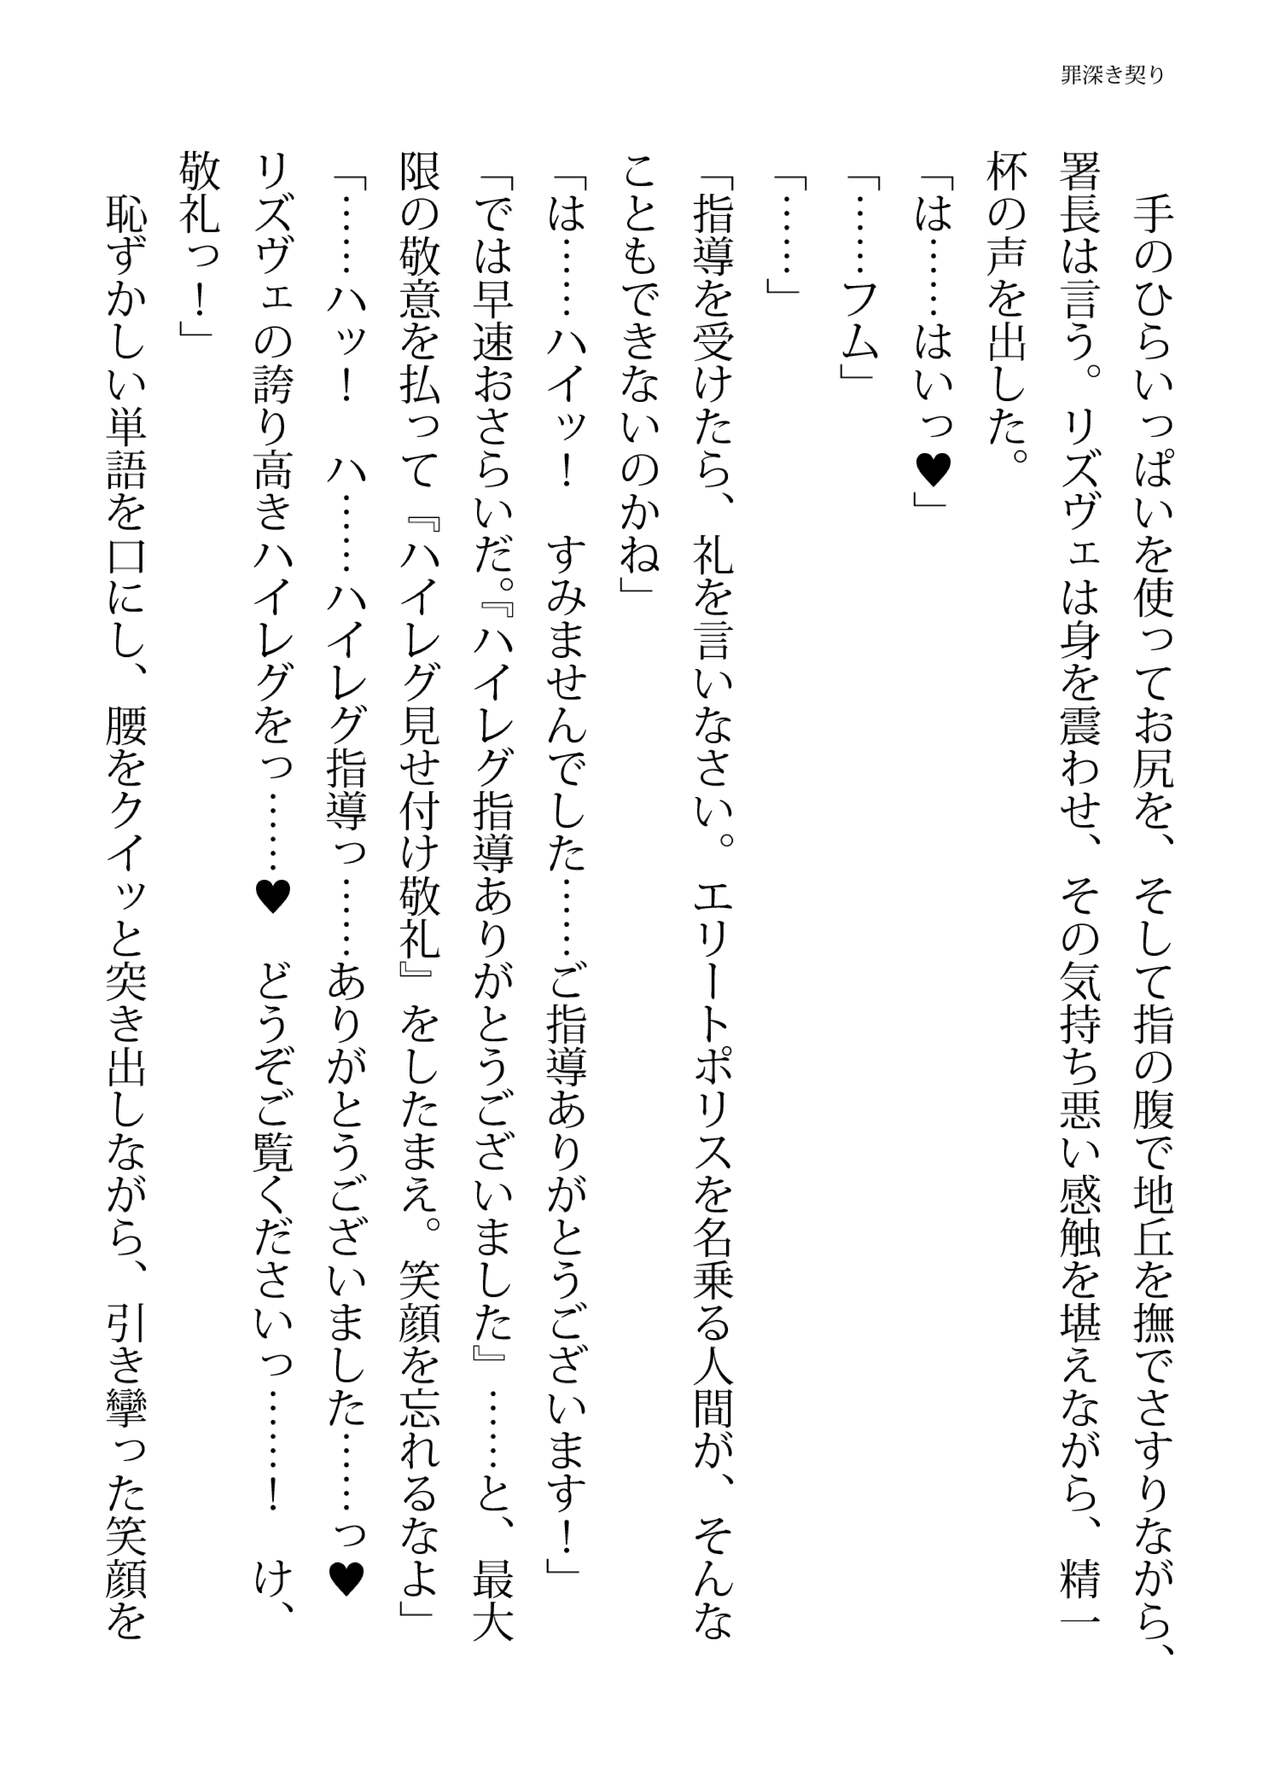 罪深き契り
　手のひらいっぱいを使ってお尻を、そして指の腹で地丘を撫でさすりながら、
署長は言う。リズヴェは身を震わせ、その気持ち悪い感触を堪えながら、精一
杯の声を出した。
「は……はいっ♥」
「……フム」
「……」
「指導を受けたら、礼を言いなさい。エリートポリスを名乗る人間が、そんな
こともできないのかね」
「は……ハイッ！　すみませんでした……ご指導ありがとうございます！」
「では早速おさらいだ。『ハイレグ指導ありがとうございました』……と、最大
限の敬意を払って『ハイレグ見せ付け敬礼』をしたまえ。笑顔を忘れるなよ」
「……ハッ！　ハ……ハイレグ指導っ……ありがとうございました……っ♥
リズヴェの誇り高きハイレグをっ……♥　どうぞご覧くださいっ……！　け、
敬礼っ！」
　恥ずかしい単語を口にし、腰をクイッと突き出しながら、引き攣った笑顔を